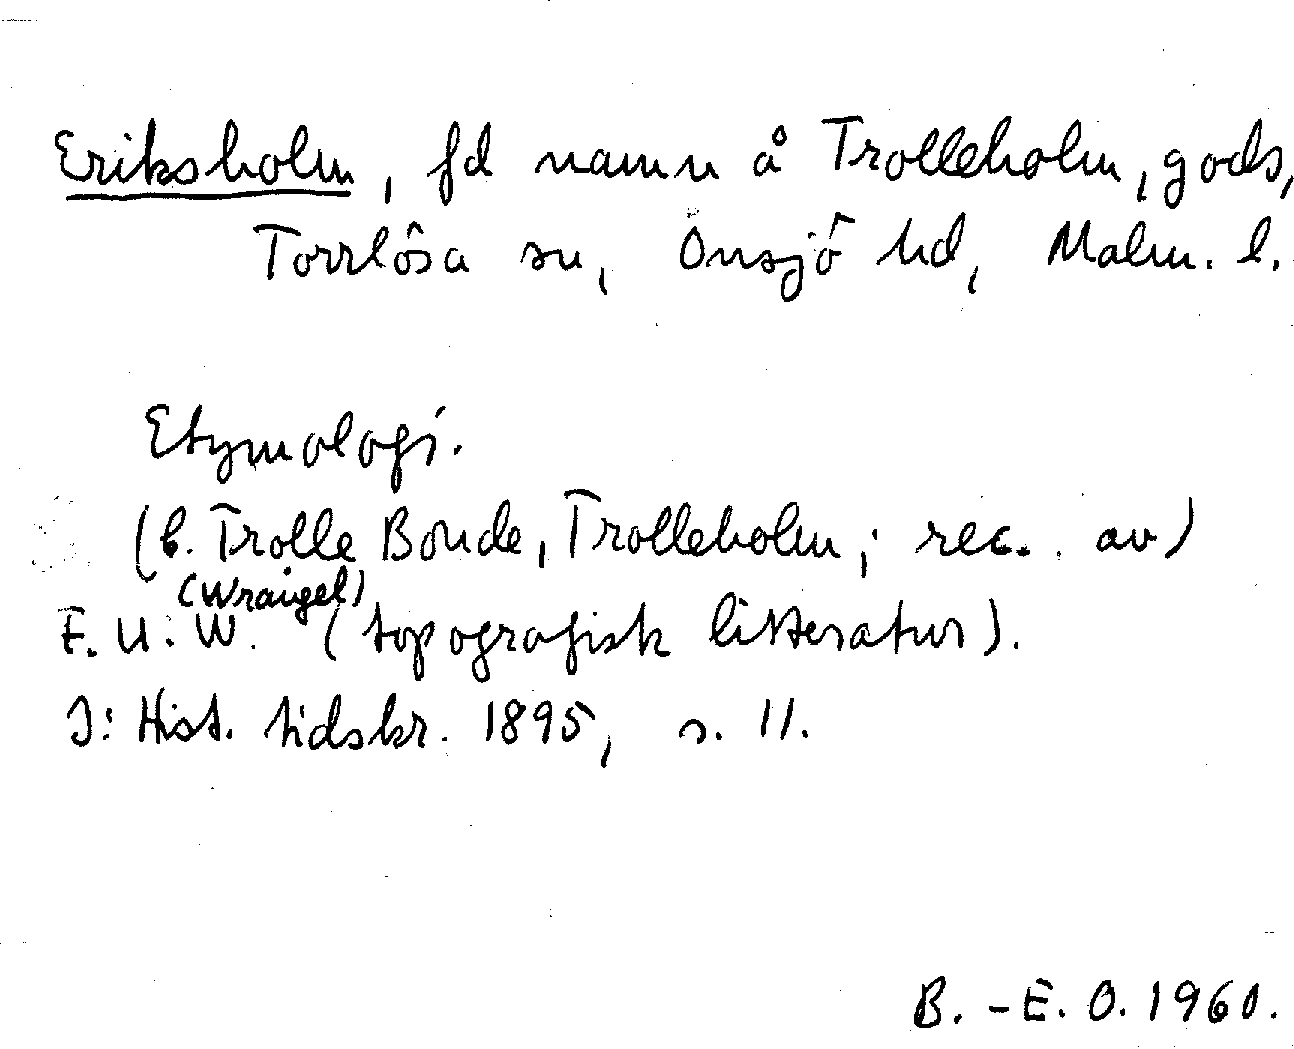 Eriksholm, fd namn å Trolleholm, gods,
Torrlösa sn, Onsjö hd, Malm. l.
Etymologi.
(b. Trolle Bonde, Trolleholm; rec. av)
(Wrangel)
F. U. W. (topografisk litteratur).
I: Hist. tidskr. 1895, s. 11.
B.-E. O. 1960.